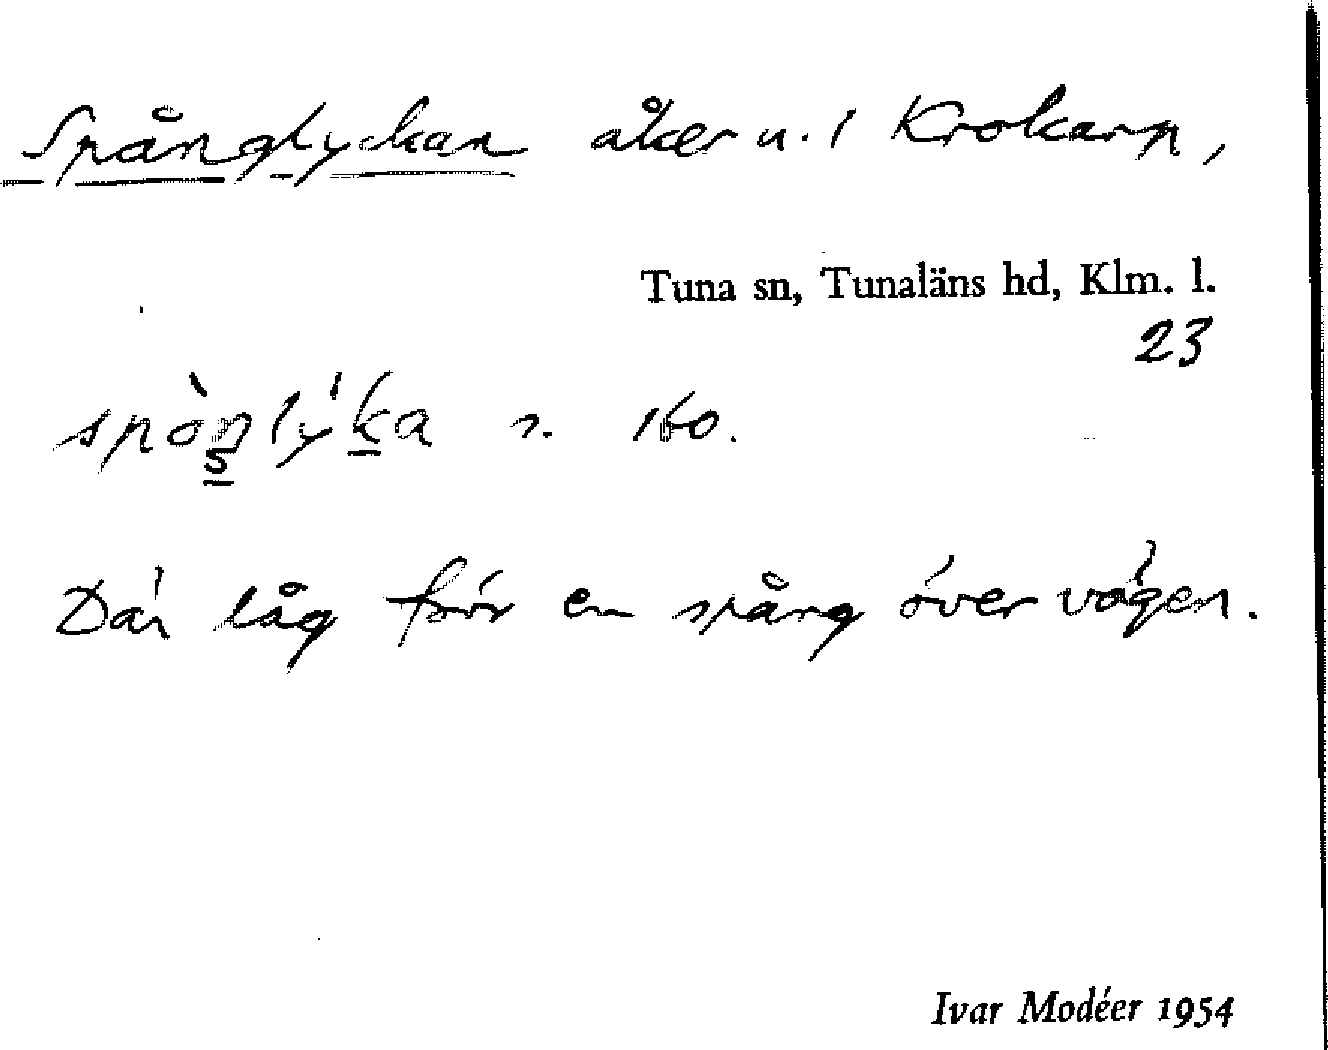 Spånglyckan åker n. i Krokarp,
Tuna sn, Tunaläns hd, Klm. l.
23
160.
Där låg förr en spång över vägen.
Ivar Modéer 1954